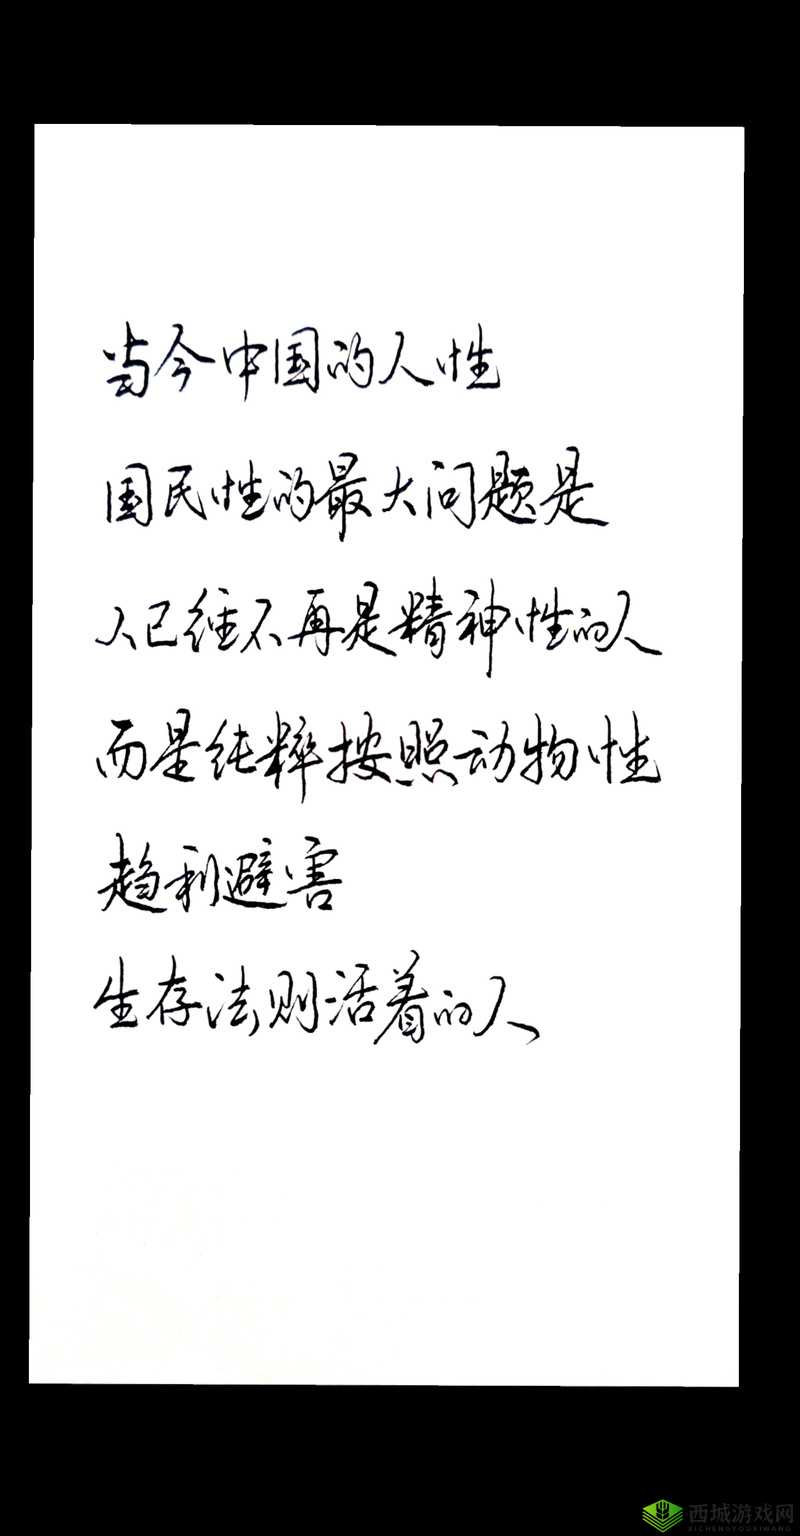 当今中国的人性
国民性的最大问题是
人已经不再是精神性的人
而是纯粹按照动物性
趋利避害
生存法则活着的人
西城游戏网
XICHENGYOUXIWANG